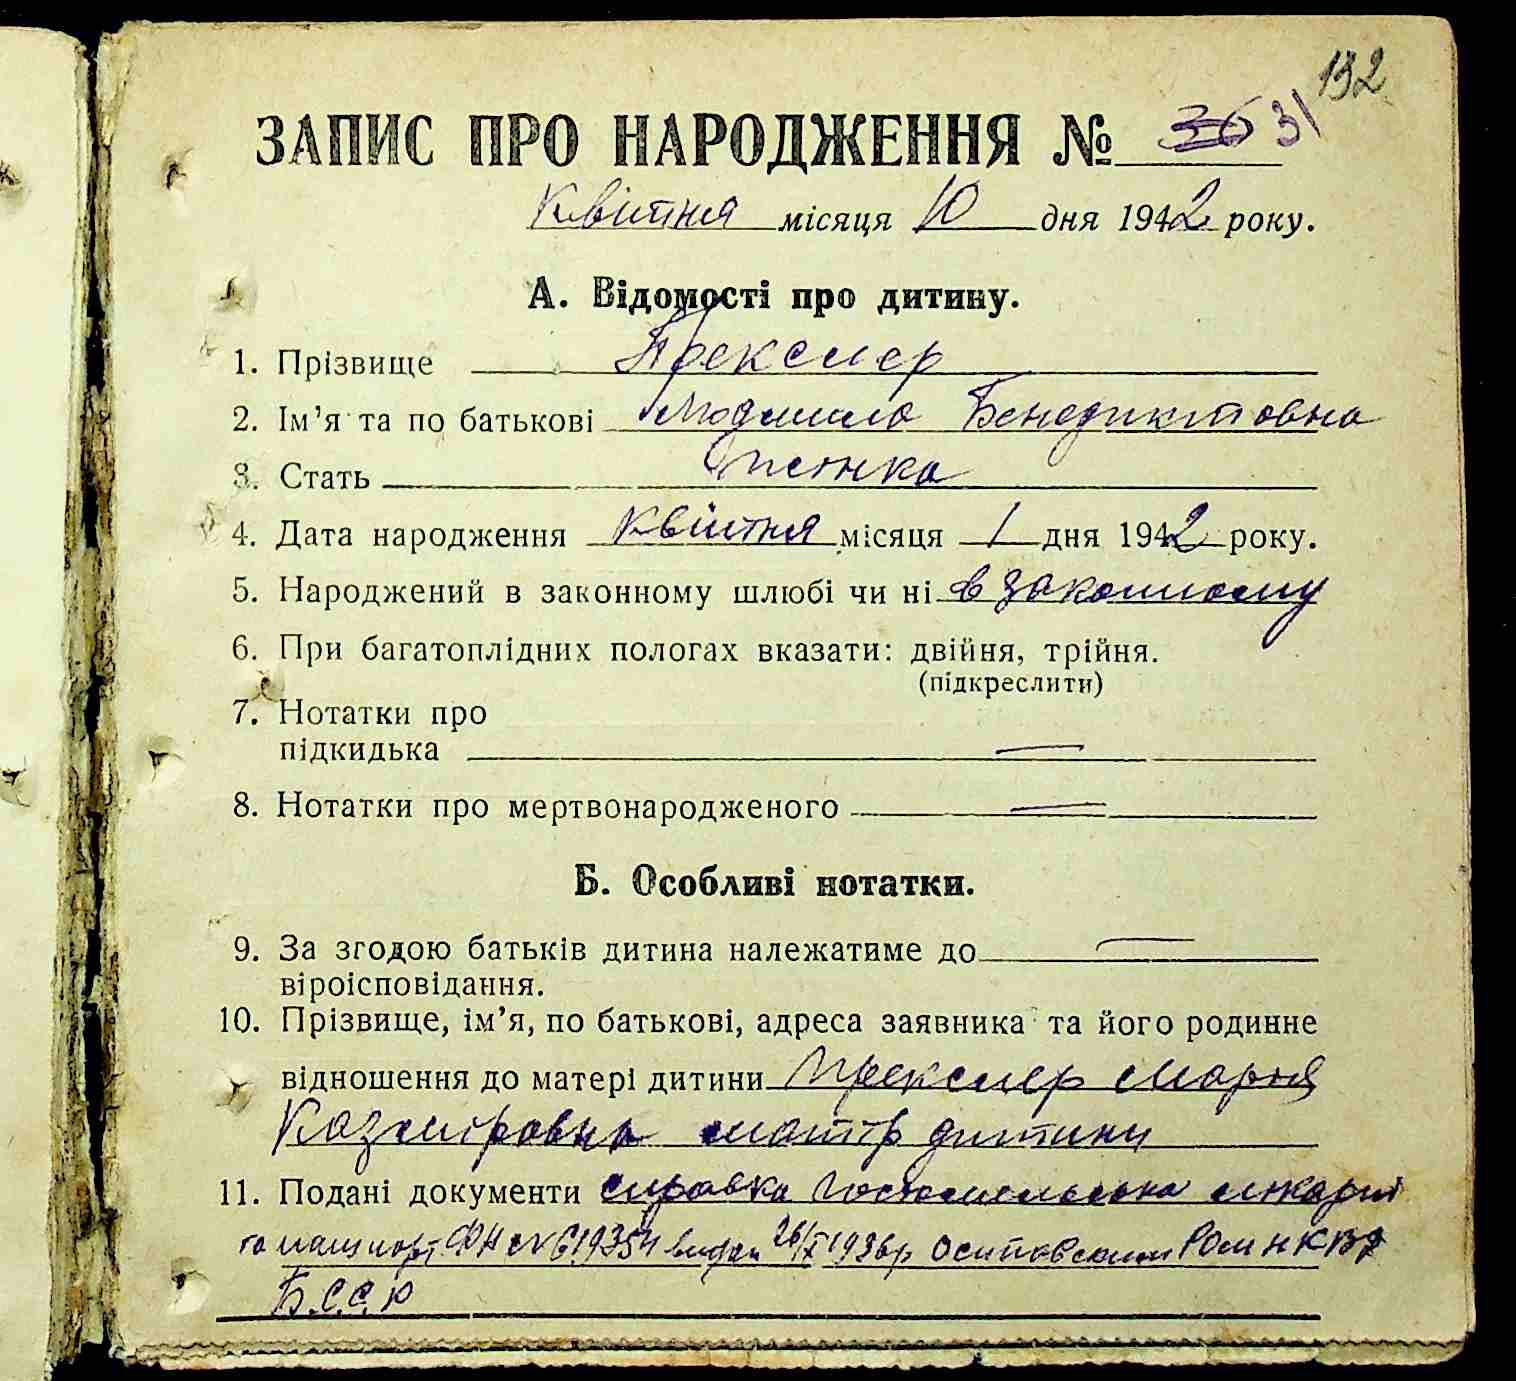 132
ЗАПИС ПРО НАРОДЖЕННЯ № 31
Квітня місяця 10 дня 1942 року.
А. Відомості про дитину.
1. Прізвище Прексмер
2. Ім’я та по батькові Людмила Бенедиктовна
3. Стать жінка
4. Дата народження Квітня місяця 1 дня 1942 року.
5. Народжений в законному шлюбі чи ні в законному
6. При багатоплідних пологах вказати: двійня, трійня.
(підкреслити)
7. Нотатки про
підкидька —
8. Нотатки про мертвонародженого —
Б. Особливі нотатки.
9. За згодою батьків дитина належатиме до —
віроісповідання.
10. Прізвище, ім’я, по батькові, адреса заявника та його родинне
відношення до матері дитини Прексмер Марія
Казміровна матір дитини
11. Подані документи справка Гостомельська лікарні
та пашпорт № 619354 видан 1936 р Осиповским НКВД
Б.С.С.Р